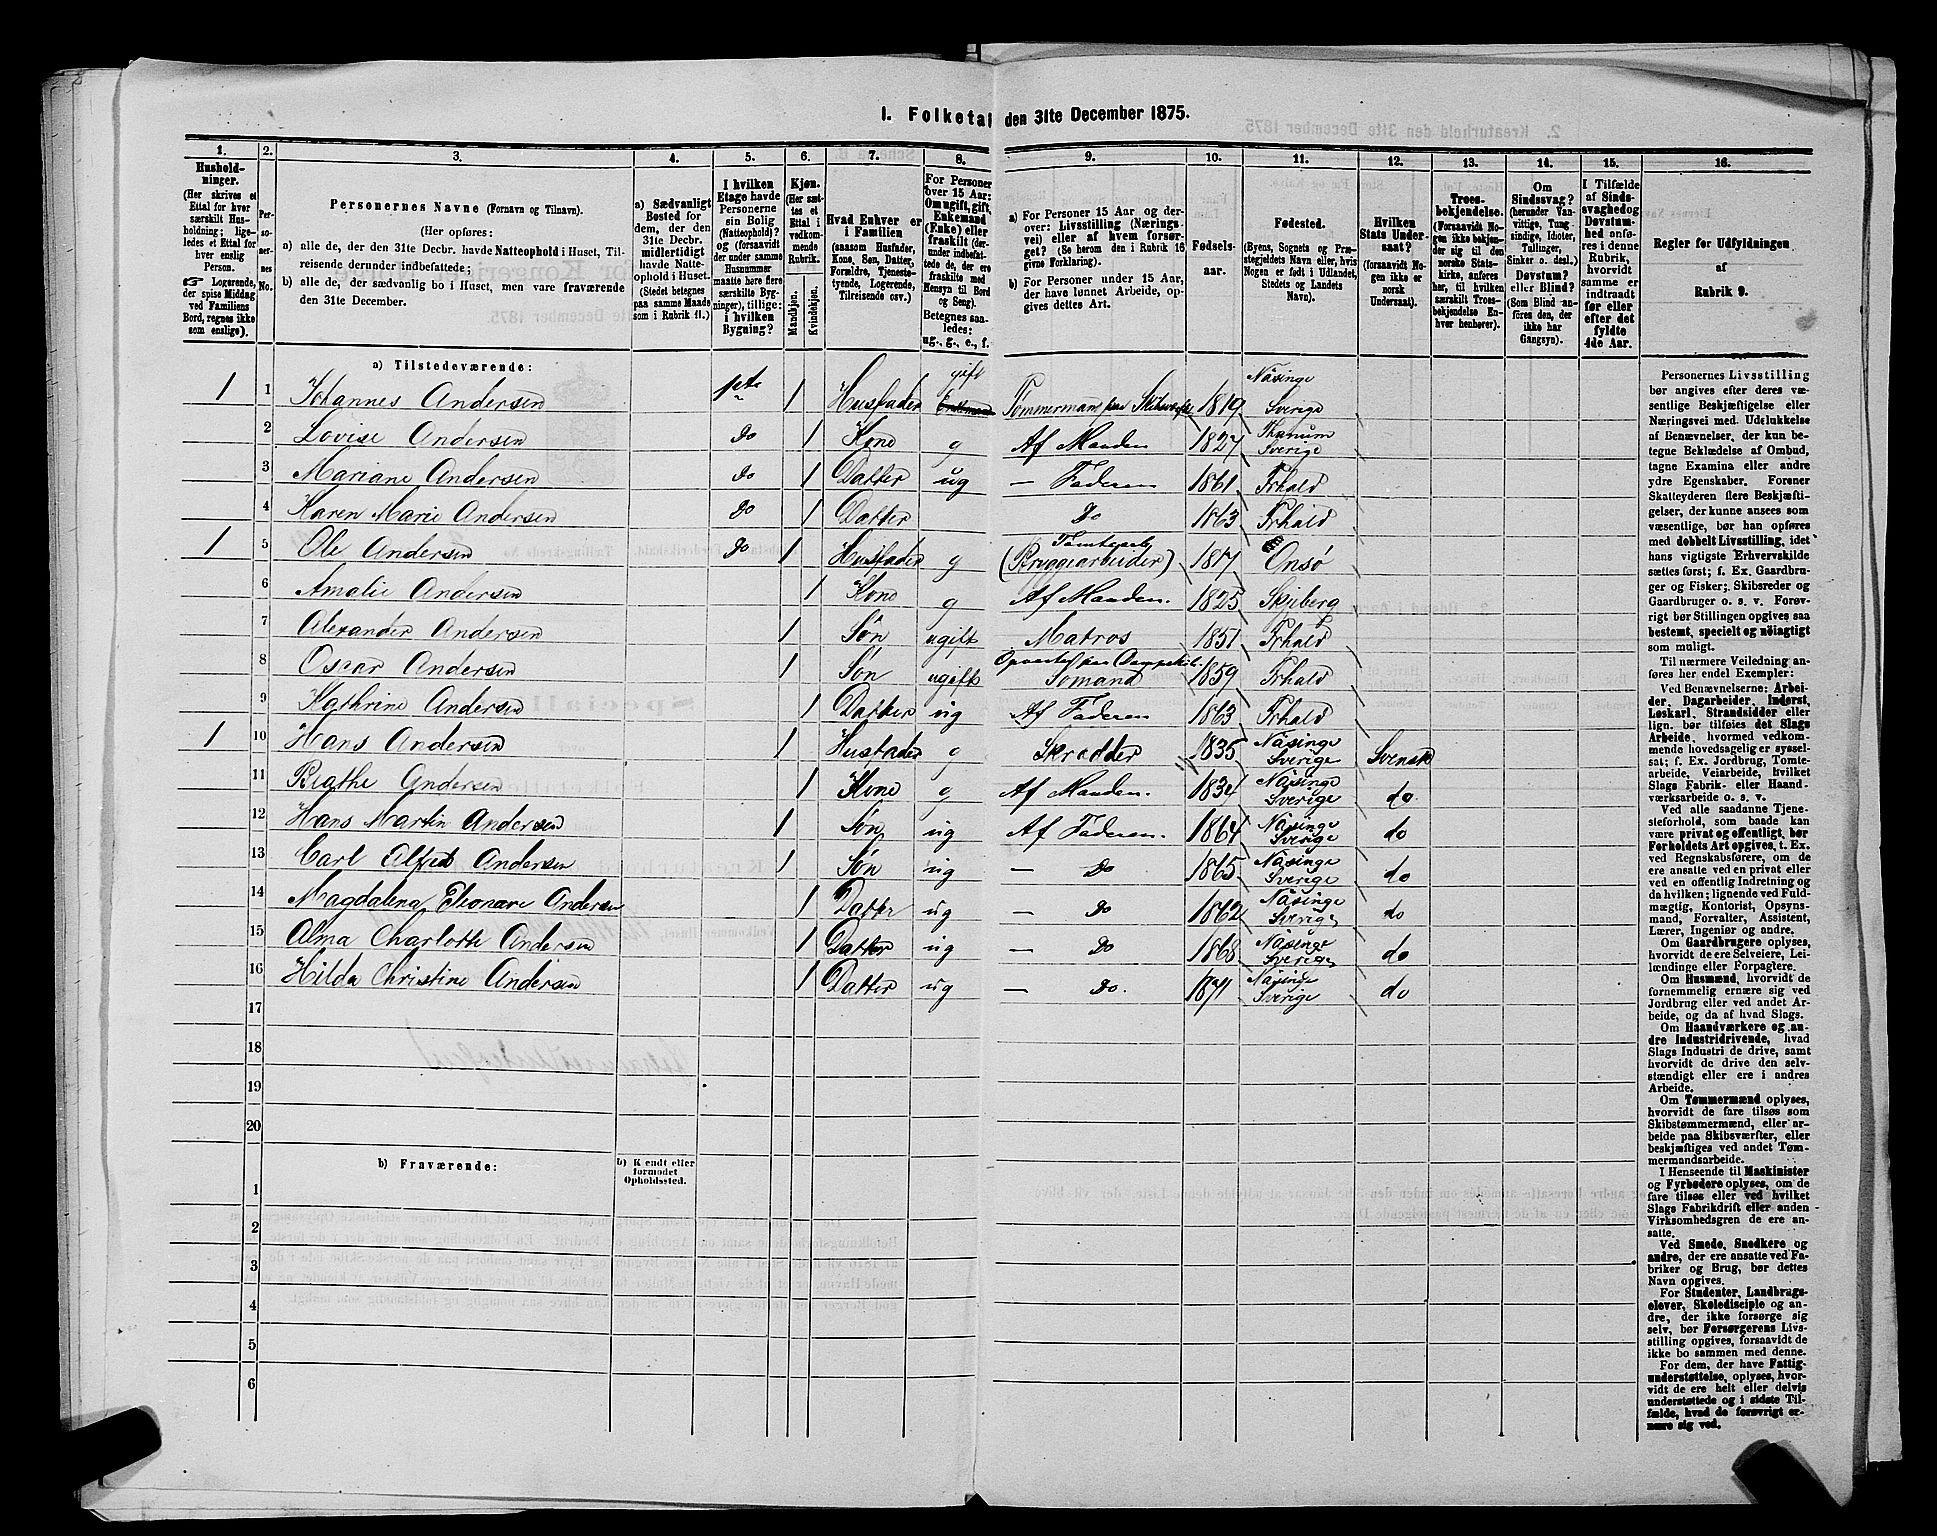 1. Folketal den 31te December 1875.
1. 2. 3. 4. 5. 6. 7. 8. 9. 10. 11. 12. 13. 14. 15. 16.
Hushold-
ninger.
(Her skrives et
Ettal for hver
særskilt Hus-
holdning; lige-
ledes et Ettal for
hver enslig
Person.
☞ Logerende,
der spise Middag
ved Familiens
Bord, regnes ikke
som enslige).
Per-
so-
ner-
nes
No.
Personernes Navne (Fornavn og Tilnavn).
(Her opføres:
a) alle de, der den 31te Decbr. havde Natteophold i Huset, Til-
reisende derunder indbefattede;
b) alle de, der sædvanlig bo i Huset, men vare fraværende
den 31te December.
a) Sædvanligt
Bosted for
dem, der den
31te Decbr.
midlertidigt
havde Natte-
ophold i Huset.
(Stedet betegnes
paa samme Maade
som i Rubrik 11.)
I hvilken
Etage havde
Personerne
sin Bolig
(Natteophold)?
og (forsaavidt
der under samme
Husnummer
maatte høre flere
særskilte Byg-
ninger), tillige:
i hvilken
Bygning?
Kjøn.
(Her sæt-
tes et
Ettal i
vedkom-
mende
Rubrik.
Mandkjøn.
Kvindekjøn.
Hvad Enhver er
i Familien
(saasom Husfader,
Kone, Søn, Datter,
Forældre, Tjeneste-
tyende, Logerende,
Tilreisende osv.)
For Personer
over 15 Aar:
Om ugift, gift,
Enkemand
(Enke) eller
fraskilt (der-
under indbefat-
tede de, der ere
fraskilte med
Hensyn til Bord
og Seng).
Betegnes saa-
ledes:
ug., g., e., f.
a) For Personer 15 Aar og der-
over: Livsstilling (Nærings-
vei) eller af hvem forsør-
get? (Se herom den i Rubrik 16
givne Forklaring).
b) For Personer under 15 Aar,
der have lønnet Arbeide, op-
gives dettes Art.
Fødsels-
aar.
Fødested.
(Byens, Sognets og Præ-
stegjeldets Navn eller, hvis
Nogen er født i Udlandet,
Stedets og Landets
Navn).
Hvilken
Stats Under-
saat?
(forsaavidt No-
gen ikke er
norsk
Undersaat).
Troes-
bekjendelse.
(Forsaavidt No-
gen ikke bekjen-
der sig til den
norske Stats-
kirke, anføres
her, til hvilken
særskilt Troes-
bekjendelse En-
hver henhører).
Om
Sindssvag?
(herunder Van-
vittige, Tung-
sindige, Idioter,
Tullinger,
Sinker o. desl.)
Døvstum?
eller Blind?
(Som Blind an-
føres den, der
ikke har
Gangsyn).
I Tilfælde
af Sinds-
svaghed og
Døvstum-
hed anfø-
res i denne
Rubrik,
hvorvidt
samme er
indtraadt
før eller
efter det
fyldte
4de Aar.
Regler for Udfyldningen
af
Rubrik 9.
a) Tilstedeværende:
1 1 Johannes Andersen 1ste 1 Husfader gift Enkemand Tømmermand paa Skibsværft 1819 Näsinge Sverige
2 Lovise Andersen do 1 Kone g Af Manden 1827 Thanum Sverige
3 Mariane Andersen do 1 Datter ug — Faderen 1861 Frhald
4 Karen Marie Andersen do 1 Datter Do 1863 Frhald
1 5 Ole Andersen do 1 Husfader g (Bryggearbeider) 1817 Onsö
6 Amalie Andersen 1 Kone g Af Manden. 1825 Skjeberg
7 Alexander Andersen 1 Søn ugift Matros 1851 Frhald
8 Oscar Andersen 1 Søn ugift Sømand 1859 Frhald
9 Kathrine Andersen 1 Datter ug Af Faderen 1863 Frhald
1 10 Hans Andersen 1 Husfader g Skrædder 1835 Näsinge Sverige Svensk
11 Beathe Andersen 1 Kone g Af Manden. 1834 Näsinge Sverige do.
12 Hans Martin Andersen 1 Søn ug Af Faderen. 1864 Näsinge Sverige do
13 Carl Alfred Andersen 1 Søn ug — Do 1865 Näsinge Sverige do
14 Magdalena Eleonore Andersen 1 Datter ug — Do 1862 Näsinge Sverige do
15 Alma Charlotte Andersen 1 Datter ug — Do 1868 Näsinge Sverige do
16 Hilda Christine Andersen 1 Datter ug — Do. 1871 Näsinge Sverige do
17
18
19
20
b) Fraværende:
b) Kjendt eller
formodet
Opholdssted.
1
2
3
4
5
6
Personernes Livsstilling
bør angives efter deres væ-
sentlige Beskjæftigelse eller
Næringsvei med Udelukkelse
af Benævnelser, der kun be-
tegne Beklædelse af Ombud,
tagne Examina eller andre
ydre Egenskaber. Forener
Skatteyderen flere Beskjæfti-
gelser, der kunne ansees som
væsentlige, bør han opføres
med dobbelt Livsstilling, idet
hans vigtigste Erhvervskilde
sættes først; f. Ex. Gaardbru-
ger og Fisker; Skibsreder og
Gaardbruger o. s. v. Forøv-
rigt bør Stillingen opgives saa
bestemt, specielt og nøiagtigt
som muligt.
Til nærmere Veiledning an-
føres her endel Exempler:
Ved Benævnelserne: Arbei-
der, Dagarbeider, Inderst,
Løskarl, Strandsidder eller
lign. bør tilføies det Slags
Arbeide, hvormed vedkom-
mende hovedsagelig er syssel-
sat; f. Ex. Jordbrug, Tomte-
arbeide, Veiarbeide, hvilket
Slags Fabrik- eller Haand-
værksarbeide o. s. v.
Ved alle saadanne Tjene-
steforhold, som baade kan
være privat og offentligt, bør
Forholdets Art opgives, t. Ex.
ved Regnskabsførere, om de
ere ansatte ved en privat eller
ved en offentlig Indretning og
da hvilken; lignende ved Fuld-
mægtig, Kontorist, Opsyns-
mand, Forvalter, Assistent,
Lærer, Ingeniør og andre.
Om Gaardbrugere oplyses,
hvorvidt de ere Selveiere, Lei-
lændinge eller Forpagtere.
Om Husmænd, hvorvidt de
fornemmelig ernære sig ved
Jordbrug eller ved andet Ar-
beide, og da af hvad Slags.
Om Haandværkere og an-
dre Industridrivende, hvad
Slags Industri de drive, samt
hvorvidt de drive den selv-
stændigt eller ere i andres
Arbeide.
Om Tømmermænd oplyses,
hvorvidt de fare tilsøs som
Skibstømmermænd, eller ar-
beide paa Skibsværfter, eller
beskjæftiges ved andet Tøm-
mermandsarbeide.
I Henseende til Maskinister
og Fyrbødere oplyses, om de
fare tilsøs eller ved hvilket
Slags Fabrikdrift eller anden
Virksomhedsgren de ere an-
satte.
Ved Smede, Snedkere og
andre, der ere ansatte ved Fa-
briker og Brug, bør dettes
Navn opgives.
For Studenter, Landbrugs-
elever, Skoledisciple og an-
dre, der ikke forsørge sig
selv, bør Forsørgerens Livs-
stilling opgives, forsaavidt de
ikke bo sammen med denne.
For dem, der have Fattig-
understøttelse, oplyses, hvor-
vidt de ere helt eller delvis
understøttede og i sidste Til-
fælde, hvad de forøvrigt er-
nære sig ved.